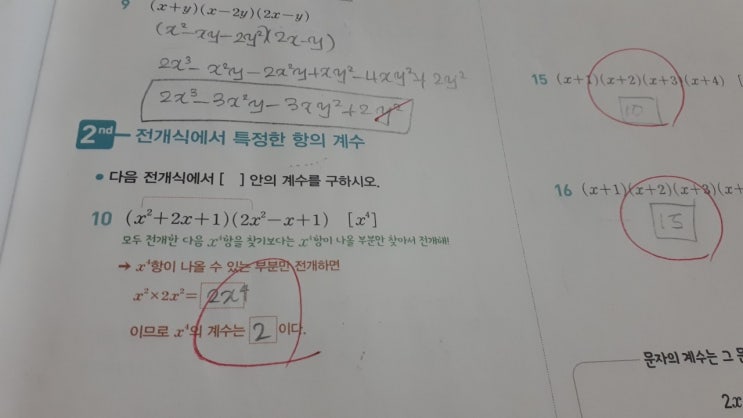 9 (x+y)(x-2y)(2x-y)
(x²-xy-2y²)(2x-y)
2x³-x²y-2x²y+xy²-4xy²+2y²
2x³-3x²y-3xy²+2y²
2nd 전개식에서 특정한 항의 계수
• 다음 전개식에서 [ ] 안의 계수를 구하시오.
10 (x²+2x+1)(2x²-x+1) [x⁴]
모두 전개한 다음 x⁴항을 찾기보다는 x⁴항이 나올 부분만 찾아서 전개해!
→ x⁴항이 나올 수 있는 부분만 전개하면
x²×2x²= 2x⁴
이므로 x⁴의 계수는 2 이다.
15 (x+1)(x+2)(x+3)(x+4) [
10
16 (x+1)(x+2)(x+3)(x+
15
문자의 계수는 그
2x